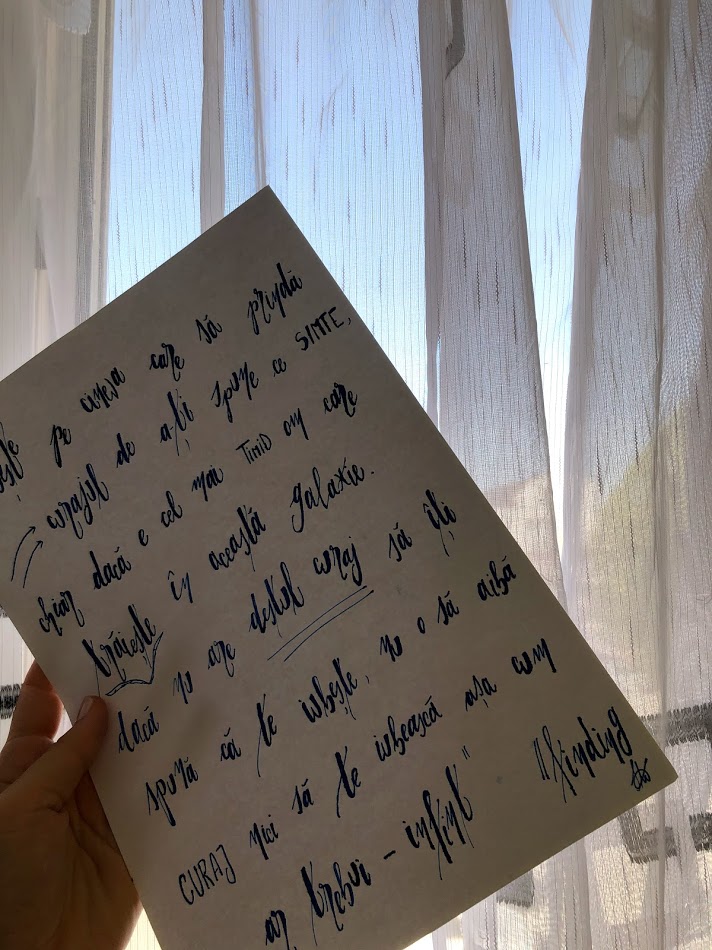 pe cineva care să prindă
curajul de a-ți spune ce SIMTE,
chiar dacă e cel mai TIMID om care
trăiește în această galaxie.
dacă nu are destul curaj să îți
spună că te iubește, nu o să aibă
CURAJ nici să te iubească așa cum
ar trebui - infinit" "finding